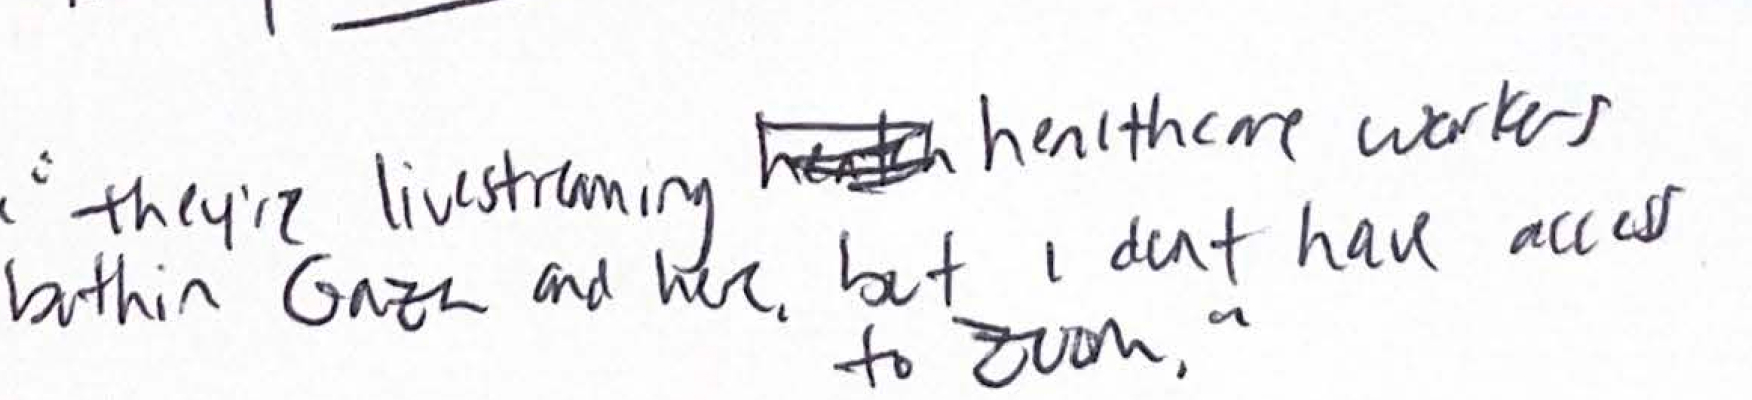 "they're livestreaming healthcare workers
both in Gaza and here, but I don't have access
to Zoom."